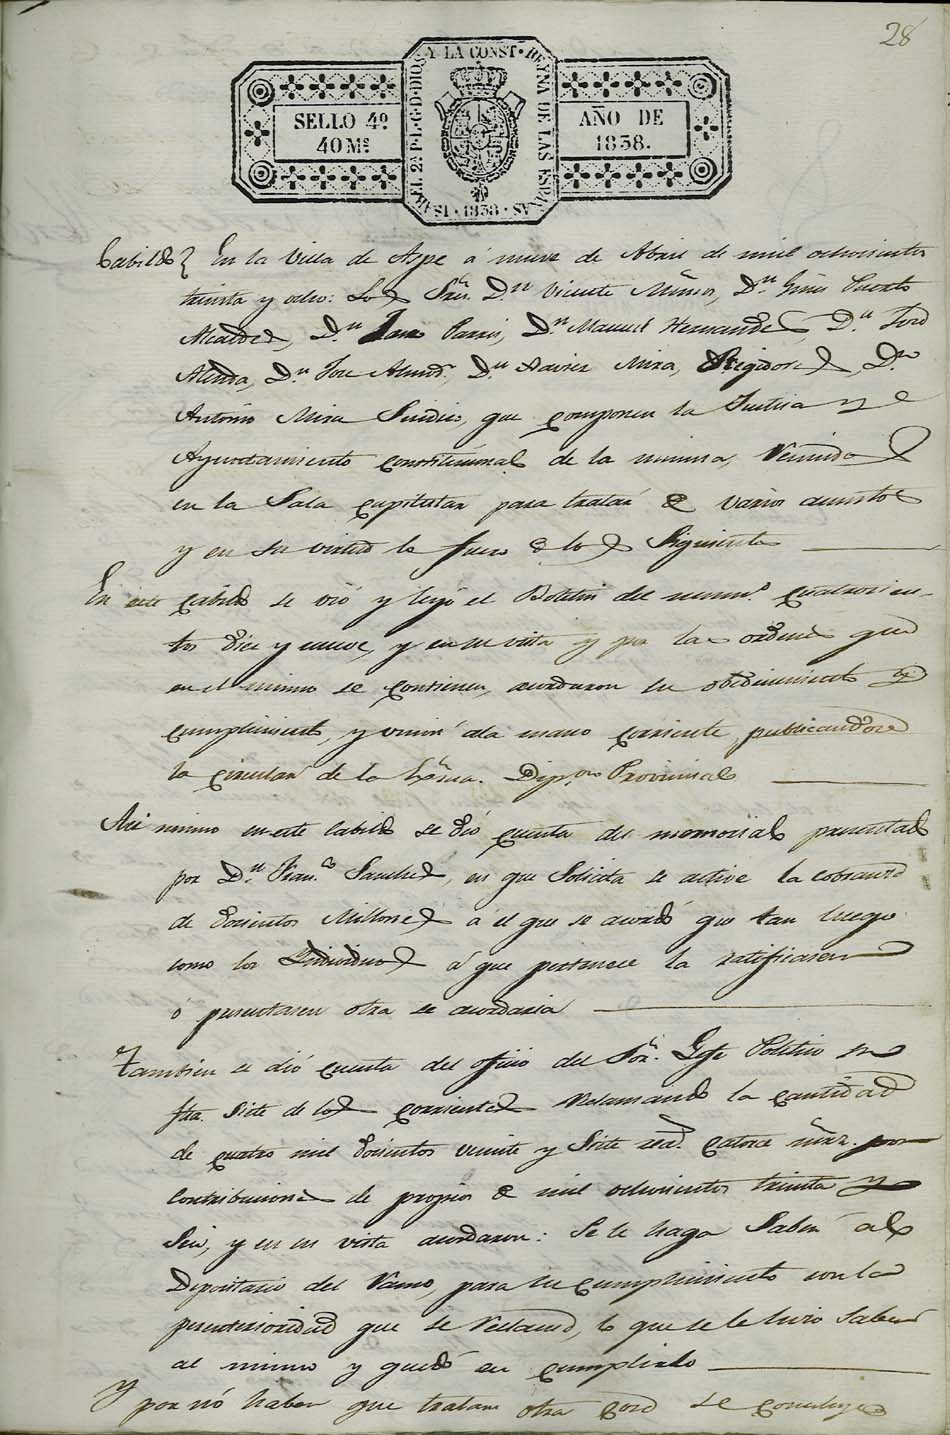 28
SELLO 4º
40 Ms
ISABEL 2ª P. L. G. D. DIOS Y LA CONST. REYNA DE LAS ESPAÑAS
1838
AÑO DE
1838.
Cabildo } En la Villa de Aspe á nueve de Abril de mil ochocientos
treinta y ocho: Los Sres. Dn Vicente Dn Gines
Alcaldes, Dn Dn Manuel Hernandes, Dn José
Dn José Dn Mira, Regidores, Dn
Antonio Mira Sindico, que componen la Justicia y
Ayuntamiento constitucional de la misma, Reunidos
en la Sala capitular para tratar de varios asuntos
y en su virtud lo fueron de los Siguientes
En este cabildo se vió y leyó el Boletin del numº cuatrocien-
tos diez y nueve, y en su vista y por las ordenes que
en el mismo se contienen, acordaron su obedecimiento y
cumplimiento, y unir ala mano corriente publicandose
la circular de la Dipon Provincial
Asi mismo en este cabildo se dió cuenta del memorial presentado
por Dn Franco Sanches, en que Solicita se active la cobranza
de Docientos Millones á el que se acordó que tan luego
como los Individuos á que pertenece la ratificasen
ó presentasen otra se acordaria
Tambien se dió cuenta del oficio del Sor. Gefe Politico su
fha. Siete de los corrientes Reclamando la cantidad
de cuatro mil docientos veinte y Siete catorce por
contribuciones de propios de mil ochocientos treinta y
Seis, y en su vista acordaron: Se le haga Saber al
Depositario del Ramo, para su cumplimiento con la
perentoriedad que se Reclama, lo que se le hizo Saber
al mismo y quedó en cumplirlo
Y por nó haber que tratar otra cosa se concluyó